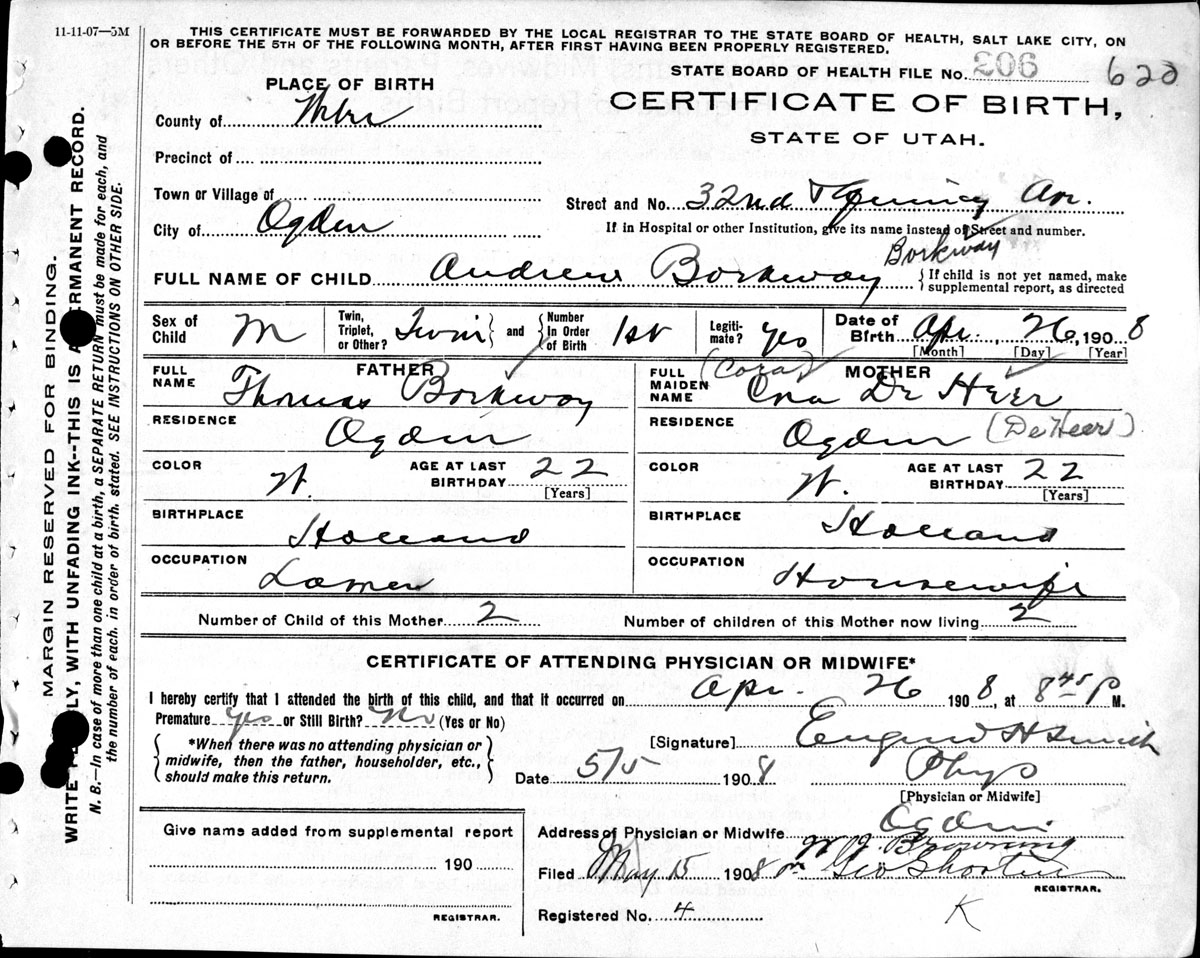 11-11-07—5M
THIS CERTIFICATE MUST BE FORWARDED BY THE LOCAL REGISTRAR TO THE STATE BOARD OF HEALTH, SALT LAKE CITY, ON
OR BEFORE THE 5TH OF THE FOLLOWING MONTH, AFTER FIRST HAVING BEEN PROPERLY REGISTERED.
STATE BOARD OF HEALTH FILE No. 206 620
PLACE OF BIRTH
CERTIFICATE OF BIRTH,
STATE OF UTAH.
County of
Precinct of
Town or Village of
Street and No. 32nd Av.
City of Ogden
If in Hospital or other Institution, give its name instead of Street and number.
Borkway
FULL NAME OF CHILD Andrew Borkway
{If child is not yet named, make
supplemental report, as directed
Sex of Child M
Twin, Triplet, or Other? Twin} and {Number In Order of Birth 1st
Legiti-mate? yes
Date of Birth Apr. 26, 1908
[Month] [Day] [Year]
FATHER
FULL NAME Thomas Borkway
RESIDENCE Ogden
COLOR W.
AGE AT LAST BIRTHDAY 22
[Years]
BIRTHPLACE Holland
OCCUPATION
MOTHER
(Cora)
FULL MAIDEN NAME Cora De Heer
RESIDENCE Ogden (De Heer)
COLOR W.
AGE AT LAST BIRTHDAY 22
[Years]
BIRTHPLACE Holland
OCCUPATION Housewife
Number of Child of this Mother 2 Number of children of this Mother now living 2
CERTIFICATE OF ATTENDING PHYSICIAN OR MIDWIFE*
I hereby certify that I attended the birth of this child, and that it occurred on Apr. 26 1908, at 8 45 P M.
Premature yes or Still Birth? No (Yes or No)
{*When there was no attending physician or
midwife, then the father, householder, etc.,
should make this return.}
[Signature] Eugene H Smith
Date 5/5 1908 Phys
[Physician or Midwife]
Give name added from supplemental report
190
REGISTRAR.
Address of Physician or Midwife Ogden
W J Browning
Filed May 15 1908 Geo Shorten
REGISTRAR.
Registered No. 4
K
MARGIN RESERVED FOR BINDING.
WRITE PLAINLY, WITH UNFADING INK--THIS IS A PERMANENT RECORD.
N. B.—In case of more than one child at a birth, a SEPARATE RETURN must be made for each, and
the number of each, in order of birth, stated. SEE INSTRUCTIONS ON OTHER SIDE.